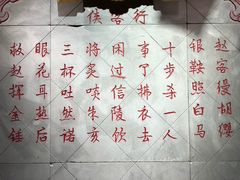 侠客行
赵客缦胡缨
银鞍照白马
十步杀一人
事了拂衣去
闲过信陵饮
将炙啖朱亥
三杯吐然诺
眼花耳热后
救赵挥金锤